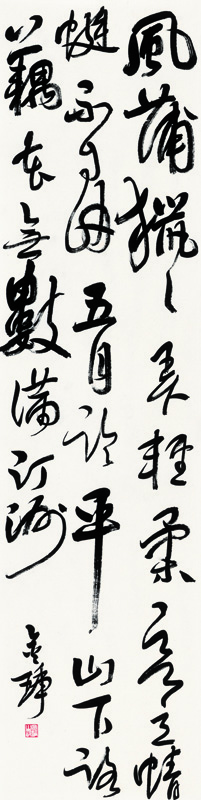 風蒲獵〻弄輕柔欲立蜻
蜓不自由五月臨平山下路
藕花無數滿汀洲